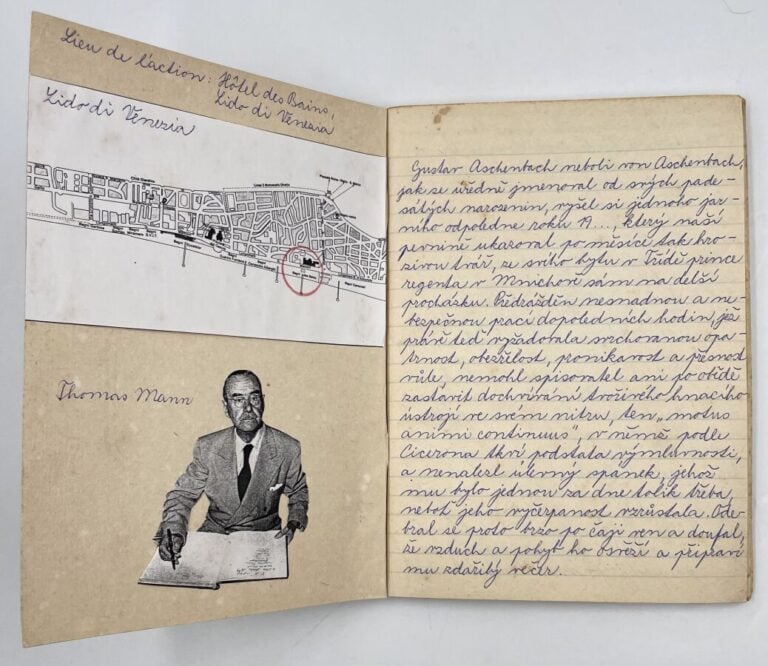 Lieu de l'action: Hôtel des Bains,
Lido di Venezia
Lido di Venezia
Thomas Mann
Gustav Aschenbach neboli von Aschenbach,
jak se úředně jmenoval od svých pade-
sátých narozenin, vyšel si jednoho jar-
ního odpoledne roku 19..., který naší
pevnině ukazoval po měsíce tak hro-
zivou tvář, ze svého bytu v Třídě prince
regenta v Mnichově sám na delší
procházku. Předrážděn nesnadnou a ne-
bezpečnou prací dopoledních hodin, jež
právě teď vyžadovala svrchovanou opa-
trnost, obezřelost, pronikavost a přesnost
vůle, nemohl spisovatel ani po obědě
zastavit dochvívání tvořivého hnacího
ústrojí ve svém nitru, ten „motus
animi continuus", v němž podle
Cicerona tkví podstata výmluvnosti,
a nenalezl úlevný spánek, jehož
mu bylo jednou za dne tolik třeba,
neboť jeho vyčerpanost vzrůstala. Ode-
bral se proto brzo po čaji ven a doufal,
že vzduch a pohyb ho osvěží a připraví
mu zdařilý večer.